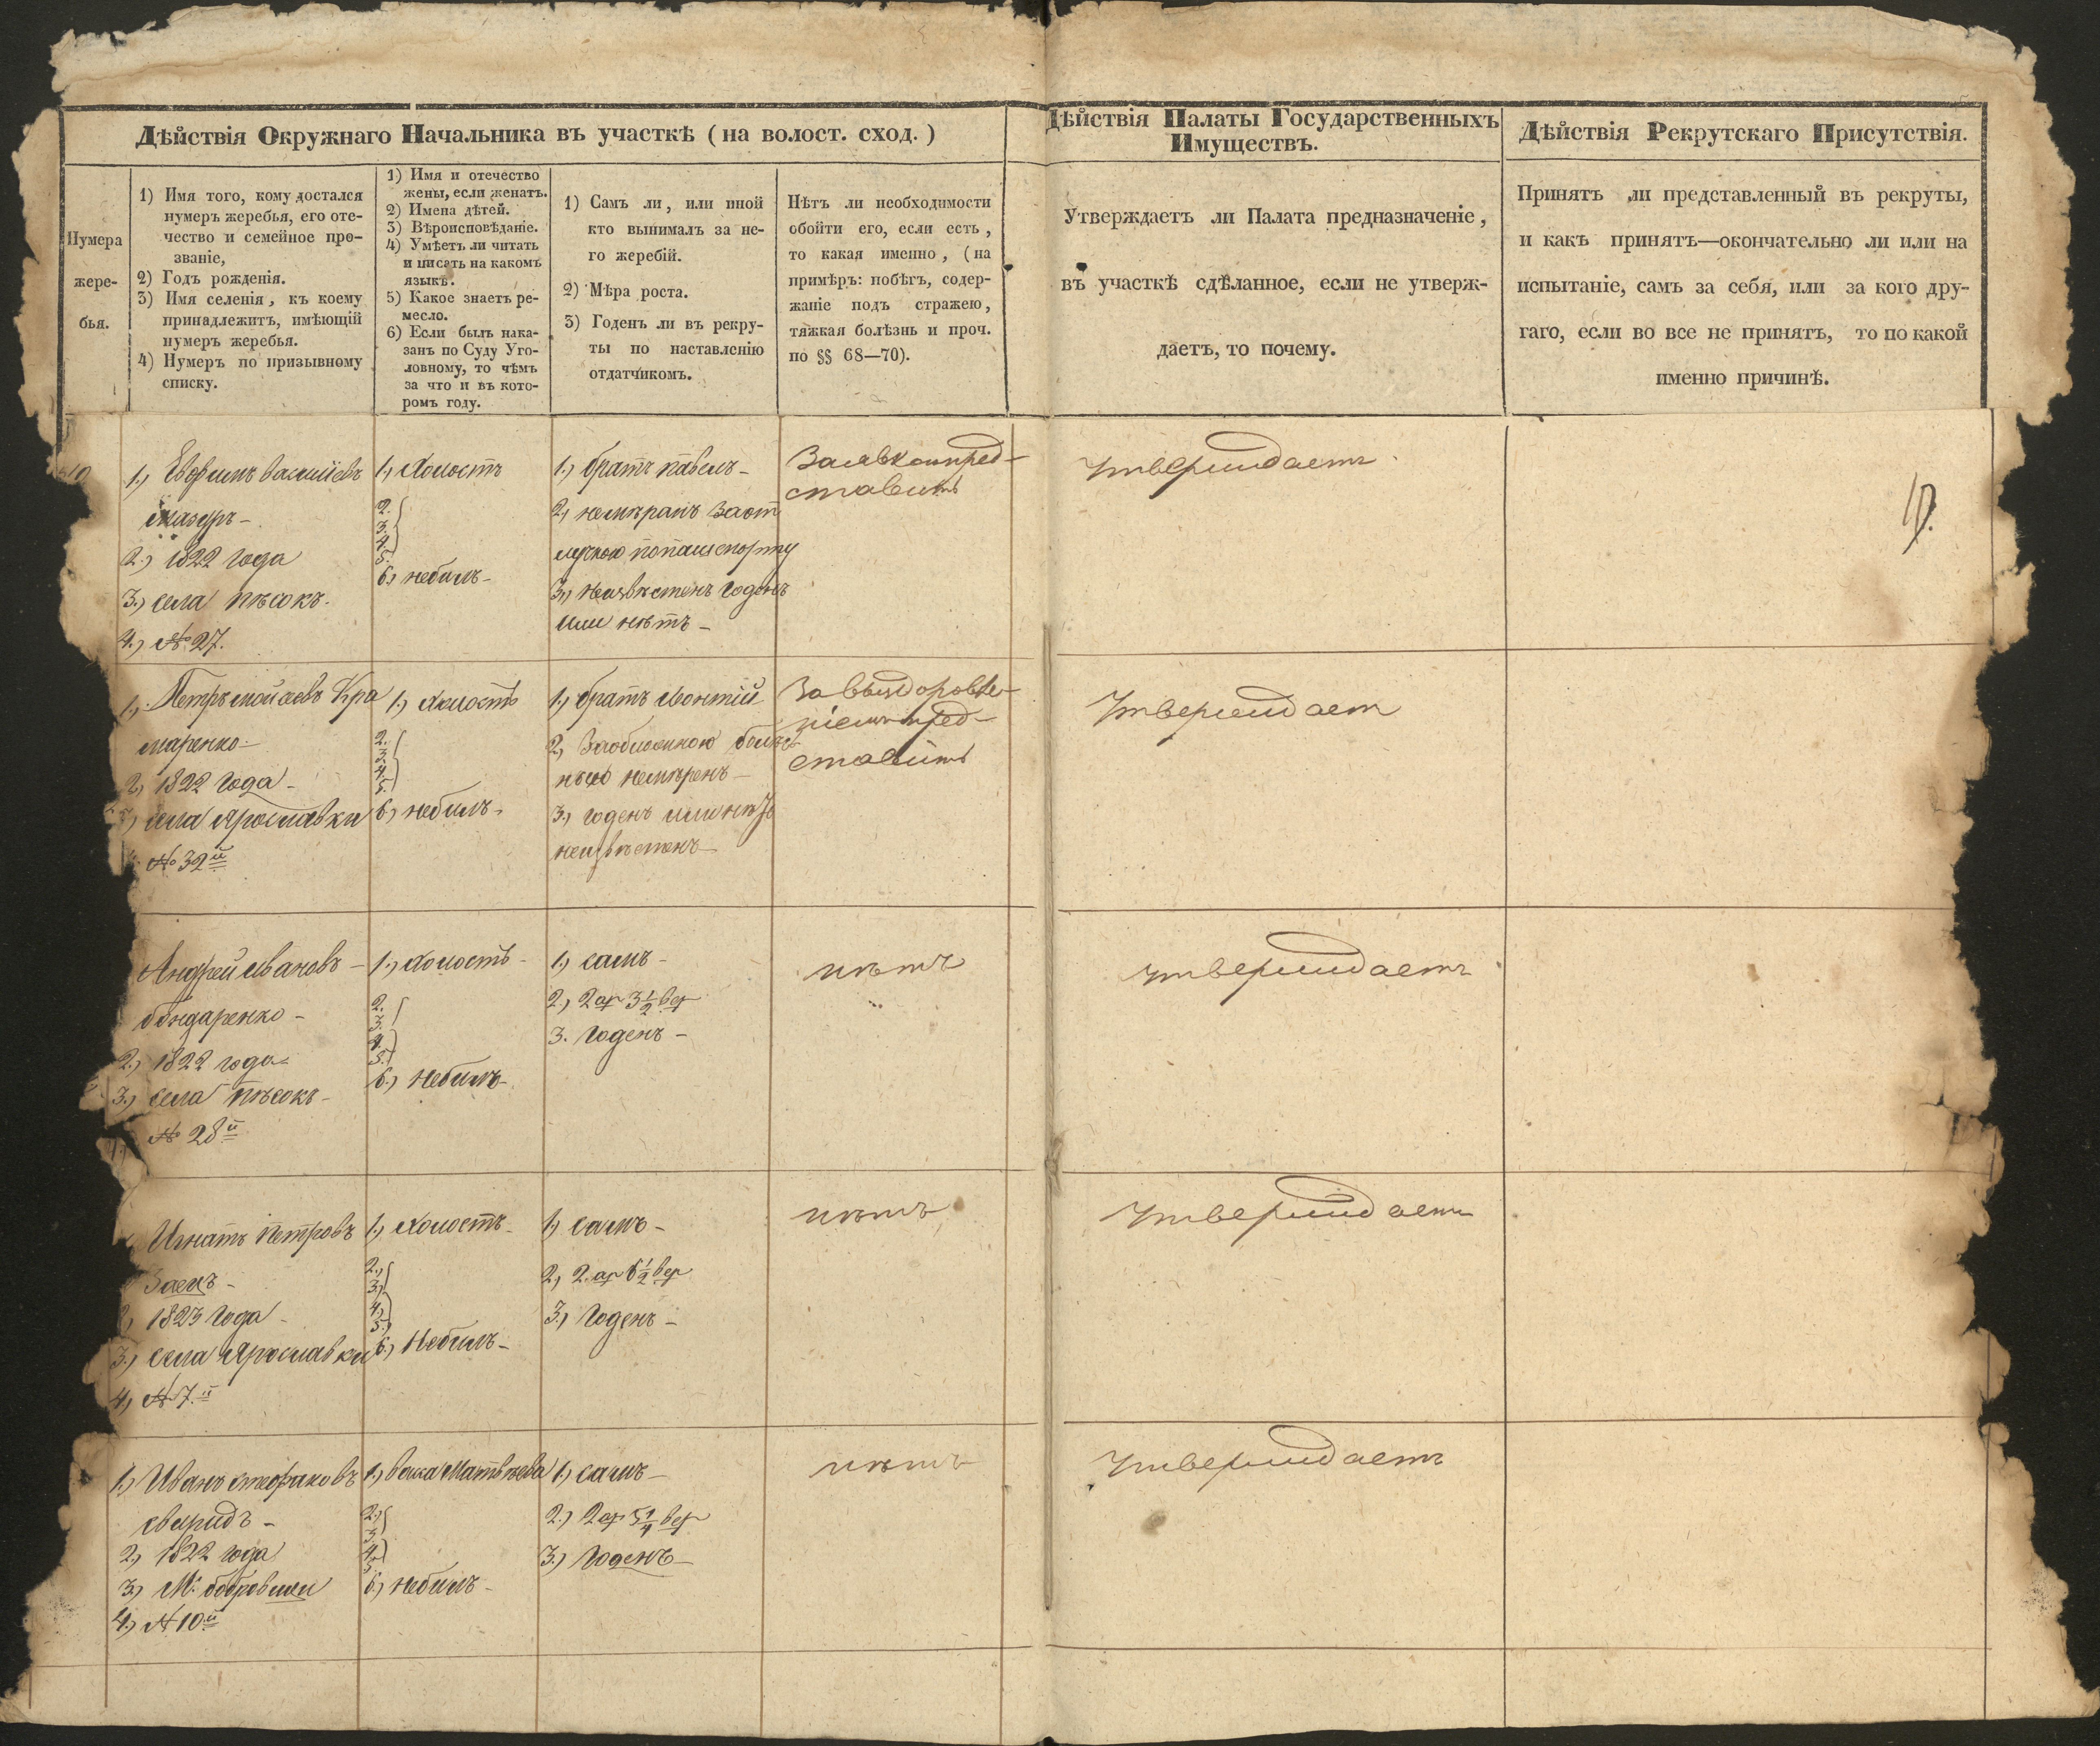 Дѣйствія Окружнаго Начальника въ участкѣ (на волост. сход.)
Нумера
жере-
бья.
1) Имя того, кому достался
нумеръ жеребья, его оте-
чество и семейное про-
званіе,
2) Годъ рожденія.
3) Имя селенія, къ коему
принадлежитъ, имѣющій
нумеръ жеребья.
4) Нумеръ по призывному
списку.
1) Имя и отечество
жены, если женатъ.
2) Имена дѣтей.
3) Вѣроисповѣданіе.
4) Умѣетъ ли читать
и писать на какомъ
языкѣ.
5) Какое знаетъ ре-
месло.
6) Если былъ нака-
занъ по Суду Уго-
ловному, то чѣмъ
за что и въ кото-
ромъ году.
1) Самъ ли, или иной
кто вынималъ за не-
го жеребій.
2) Мѣра роста.
3) Годенъ ли въ рекру-
ты по наставленію
отдатчикомъ.
Нѣтъ ли необходимости
обойти его, если есть,
то какая именно, (на
примѣръ: побѣгъ, содер-
жаніе подъ стражею,
тяжкая болѣзнь и проч.
по §§ 68—70).
Дѣйствія Палаты Государственныхъ
Имуществъ.
Утверждаетъ ли Палата предназначеніе,
въ участкѣ сдѣланное, если не утверж-
даетъ, то почему.
Дѣйствія Рекрутскаго Присутствія.
Принятъ ли представленный въ рекруты,
и какъ принятъ—окончательно ли или на
испытаніе, самъ за себя, или за кого дру-
гаго, если во все не принятъ, то по какой
именно причинѣ.
1.) Евфимъ васильевъ
мазуръ -
2.) 1822 года
3.) села пѣсокъ.
4.) № 27.
1.) Холостъ
2.
3.
4.
5.
6.) небылъ -
1.) братъ павелъ -
2.) немѣранъ заот
лучкою попашпорту
3.) неизвѣстенъ годенъ
или нѣтъ -
Заявкою пред-
ставить
утверждаетъ
19.
1.) Петръ мойсеевъ Кра
маренко -
2.) 1822 года -
3.) села Ярославки
№ 32й
1.) Холостъ
2.
3.
4.
5.
6.) небылъ -
1.) братъ леонтій
2.) Заободежною болѣз
нью немѣренъ -
3.) годенъ или нѣтъ
неизвѣстенъ -
За выздоровле-
ніемъ пред-
ставить
Утверждает
Андрей Ивановъ -
бондаренко -
2.) 1822 года
3.) села пѣсокъ -
№ 28й
1.) Холостъ -
2.
3.
4.
5.
6.) небылъ -
1.) самъ -
2.) 2 ар 3 1/2 вер
3. Годенъ -
нѣтъ
утверждаетъ
Игнатъ петровъ
Заецъ -
2, 1823 года -
3.) села Ярославки
4.) № 7.й
1.) Холостъ -
2.)
3.)
4.)
5.)
6.) небылъ -
1.) самъ -
2.) 2. ар 6 1/2 вер
3.) Годенъ -
нѣтъ
Утверждаетъ
1.) Иванъ стефановъ
свиридъ -
2.) 1822 года
3.) М: бобровицы
4.) № 10й
1.) васса Матвѣева
2.)
3.
4.
5.
6.) небылъ -
1.) самъ -
2.) 2 ар 5 1/4 вер
3.) Годенъ -
нѣтъ
Утверждаетъ